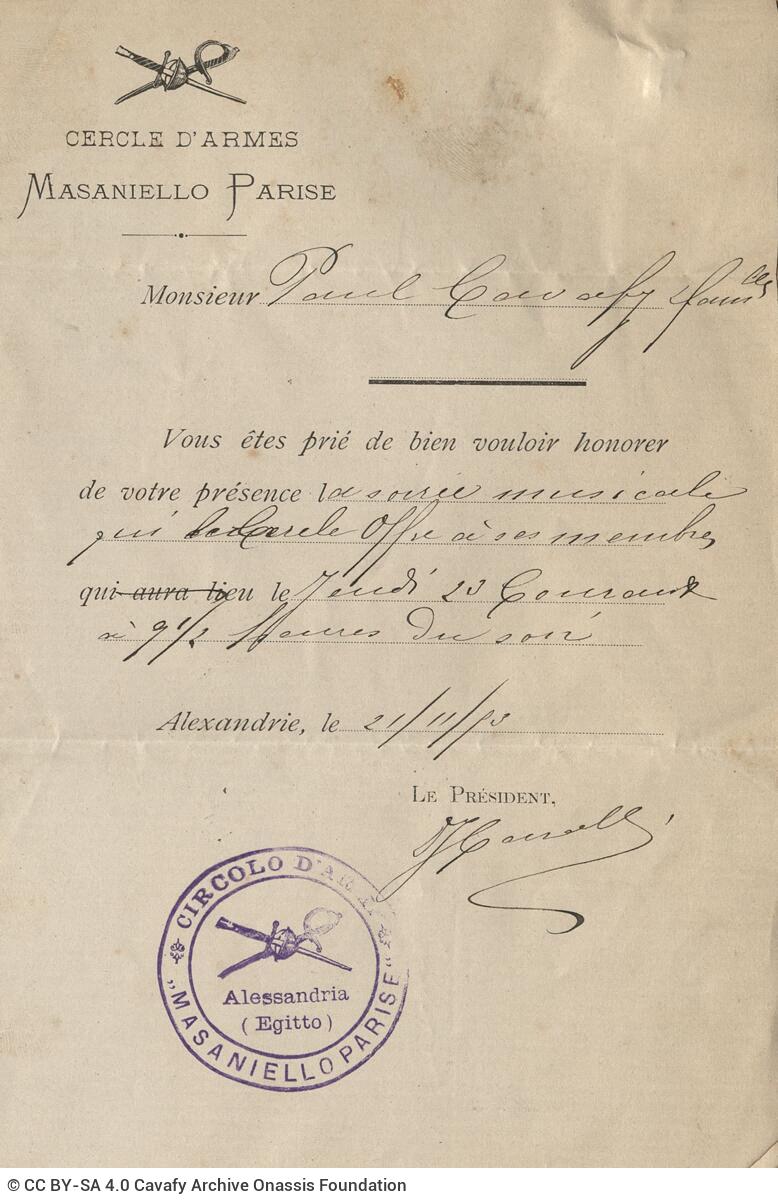 CERCLE D'ARMES
MASANIELLO PARISE
Monsieur Paul Cavafy
Vous êtes prié de bien vouloir honorer
de votre présence la soirée musicale
qui le Cercle Offre à ses membres
qui aura lieu le Jeudi 23 Courant
à 9 1/2 Heures du soir
Alexandrie, le 21/11/93
LE PRÉSIDENT,
CIRCOLO D'ARMI
Alessandria
(Egitto)
„MASANIELLO PARISE”
© CC BY-SA 4.0 Cavafy Archive Onassis Foundation